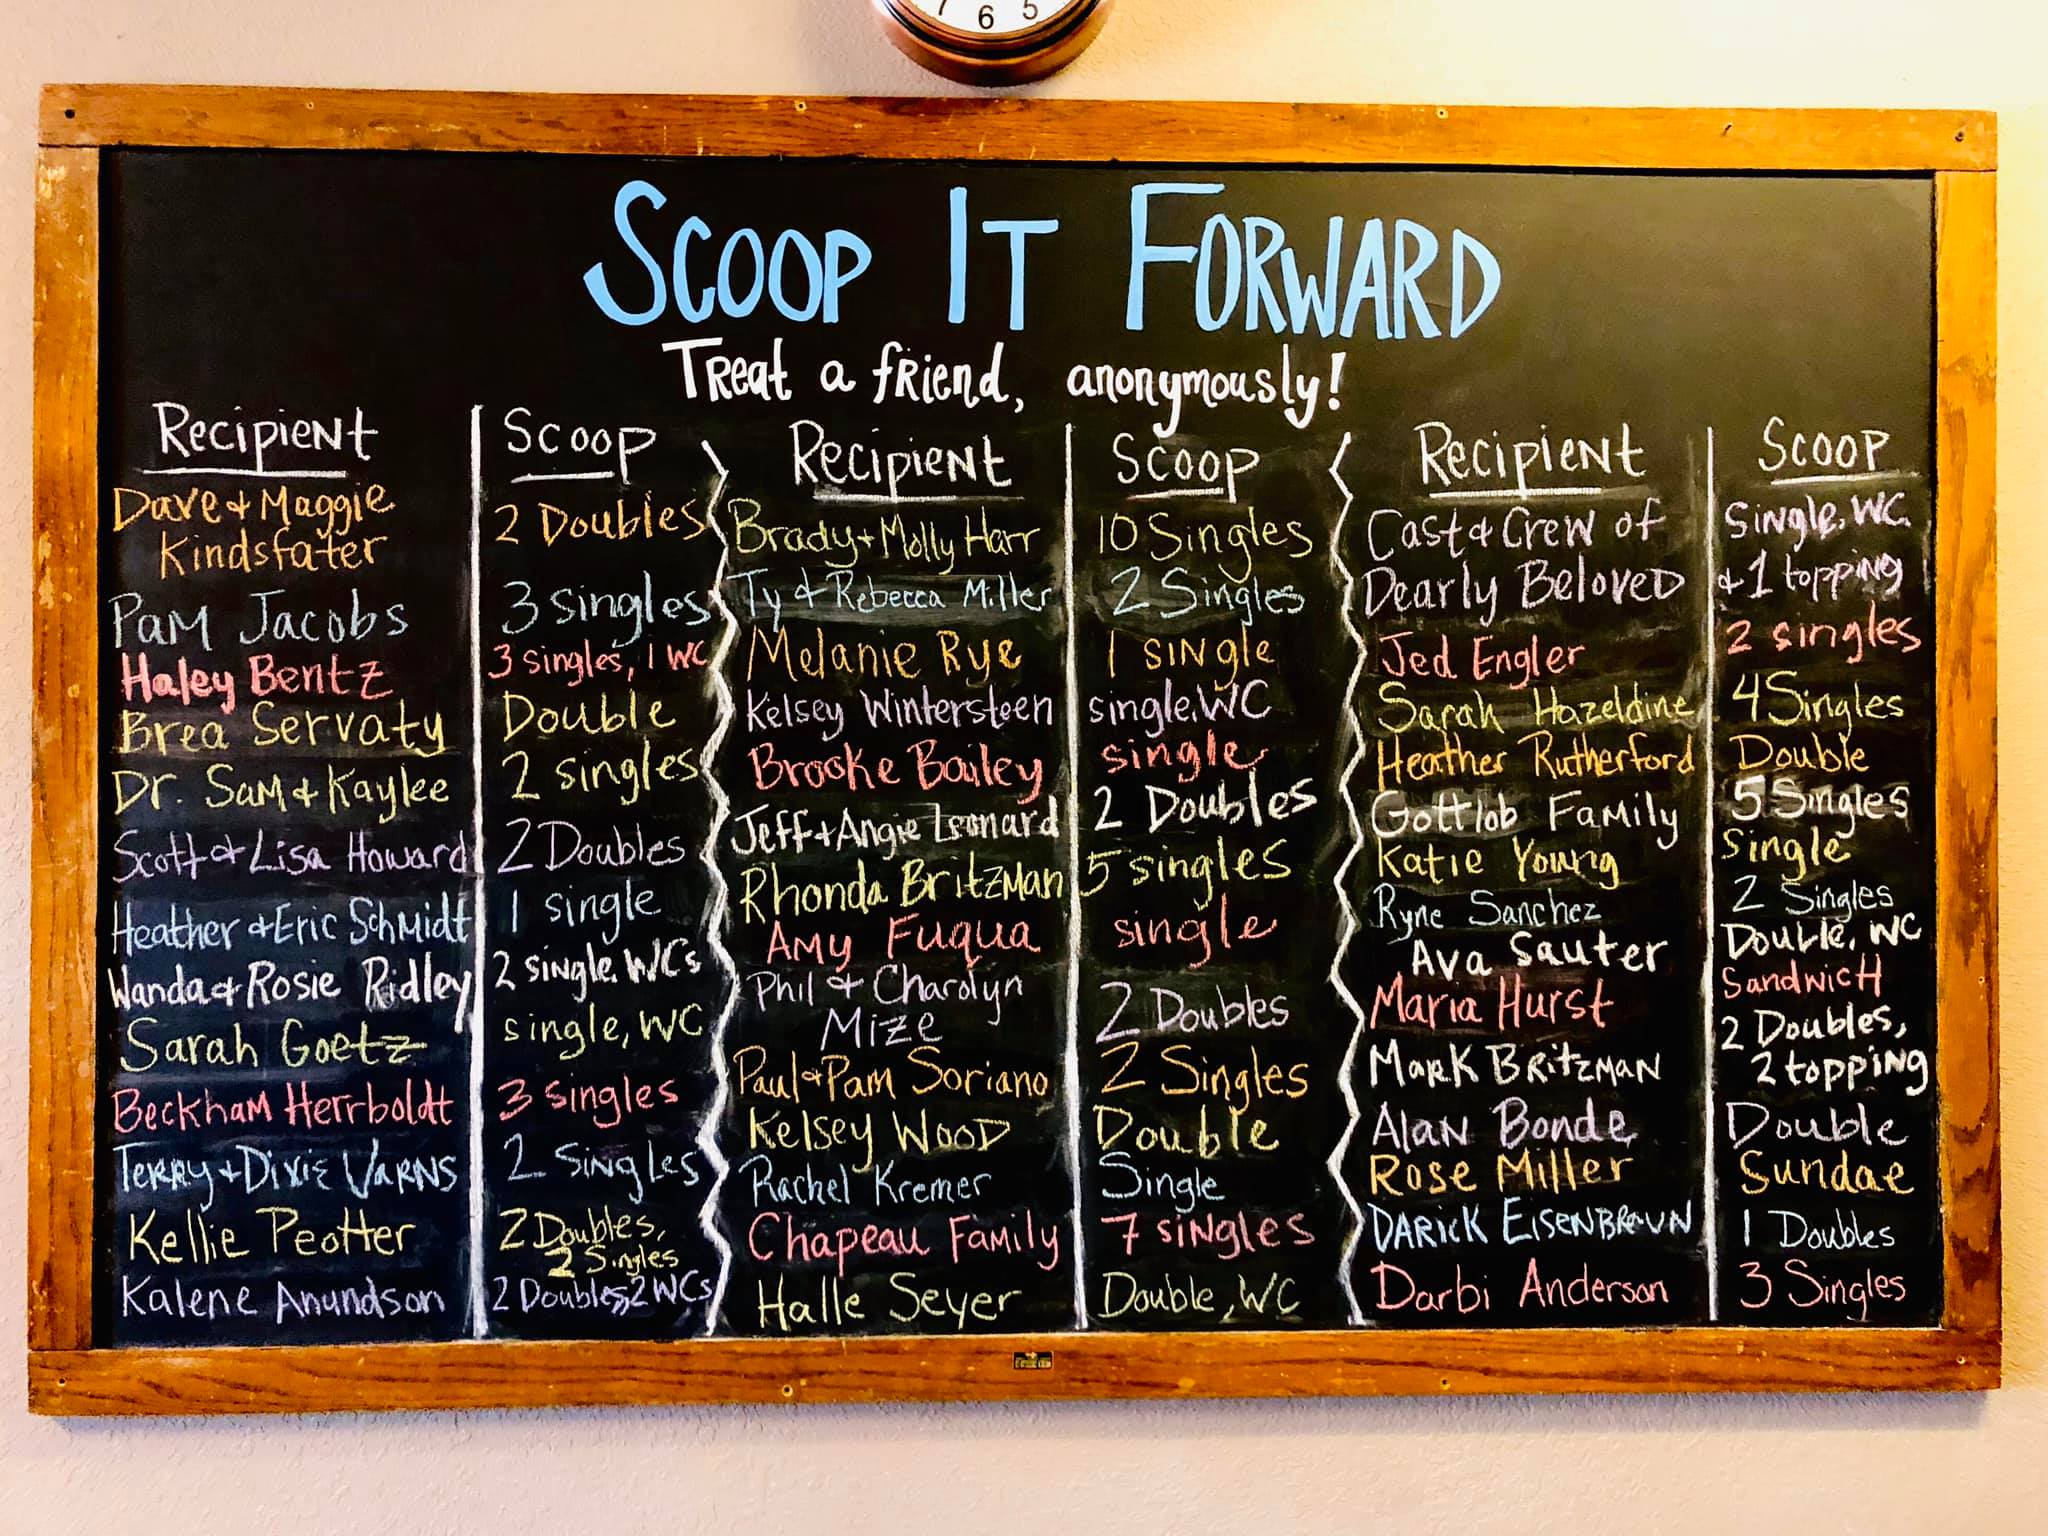 7 6 5
Scoop It Forward
Treat a friend, anonymously!
Recipient
Scoop
Dave & Maggie
Kindsfater
2 Doubles
Pam Jacobs
3 singles
Haley Bentz
3 singles, 1 WC
Brea Servaty
Double
Dr. Sam & Kaylee
2 singles
Scott & Lisa Howard
2 Doubles
Heather & Eric Schmidt
1 single
Wanda & Rosie Ridley
2 single, WCs
Sarah Goetz
single, WC
Beckham Herrboldt
3 singles
Terry + Dixie Varns
2 Singles
Kellie Peotter
2 Doubles,
2 Singles
Kalene Anundson
2 Doubles, 2 WCs
Recipient
Scoop
Brady + Molly Harr
10 Singles
Ty & Rebecca Miller
2 Singles
Melanie Rye
1 single
Kelsey Wintersteen
single, WC
Brooke Bailey
single
Jeff + Angie Leonard
2 Doubles
Rhonda Britzman
5 singles
Amy Fuqua
single
Phil & Charolyn
Mize
2 Doubles
Paul & Pam Soriano
2 Singles
Kelsey Wood
Double
Rachel Kremer
Single
Chapeau Family
7 singles
Halle Seyer
Double, WC
Recipient
Scoop
Cast & Crew of
Dearly Beloved
Single, WC
& 1 topping
Jed Engler
2 singles
Sarah Hazeldine
4 Singles
Heather Rutherford
Double
Gottlob Family
5 Singles
Katie Young
Single
Ryne Sanchez
2 Singles
Ava Sauter
Double, WC
Maria Hurst
Sandwich
Mark Britzman
2 Doubles,
2 topping
Alan Bonde
Double
Rose Miller
Sundae
Darick Eisenbraun
1 Doubles
Darbi Anderson
3 Singles